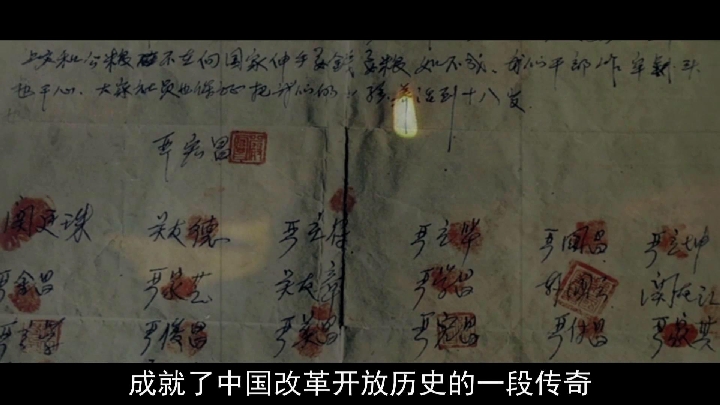 上交和公粮不在向国家伸手要钱要粮 如不成、我们干部作牢刹头
也干心、大家社员也保证把我们的小孩养活到十八岁.
严宏昌
关廷珠 关友德 严立符 严立华 严国昌 严立坤
严金昌 严家芝 关友章 严学昌 韩国云 关友江
严立学 严俊昌 严美昌 严宏昌 严付昌 严家其
成就了中国改革开放历史的一段传奇